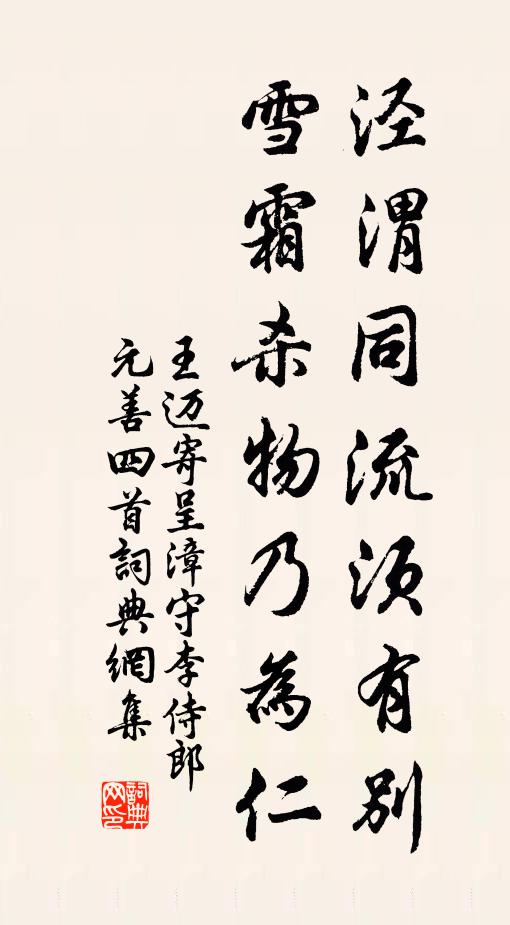 泾渭同流须有别
雪霜杀物乃為仁
王迈寄呈漳守李侍郎
元善四首詞典網集
詞典网印